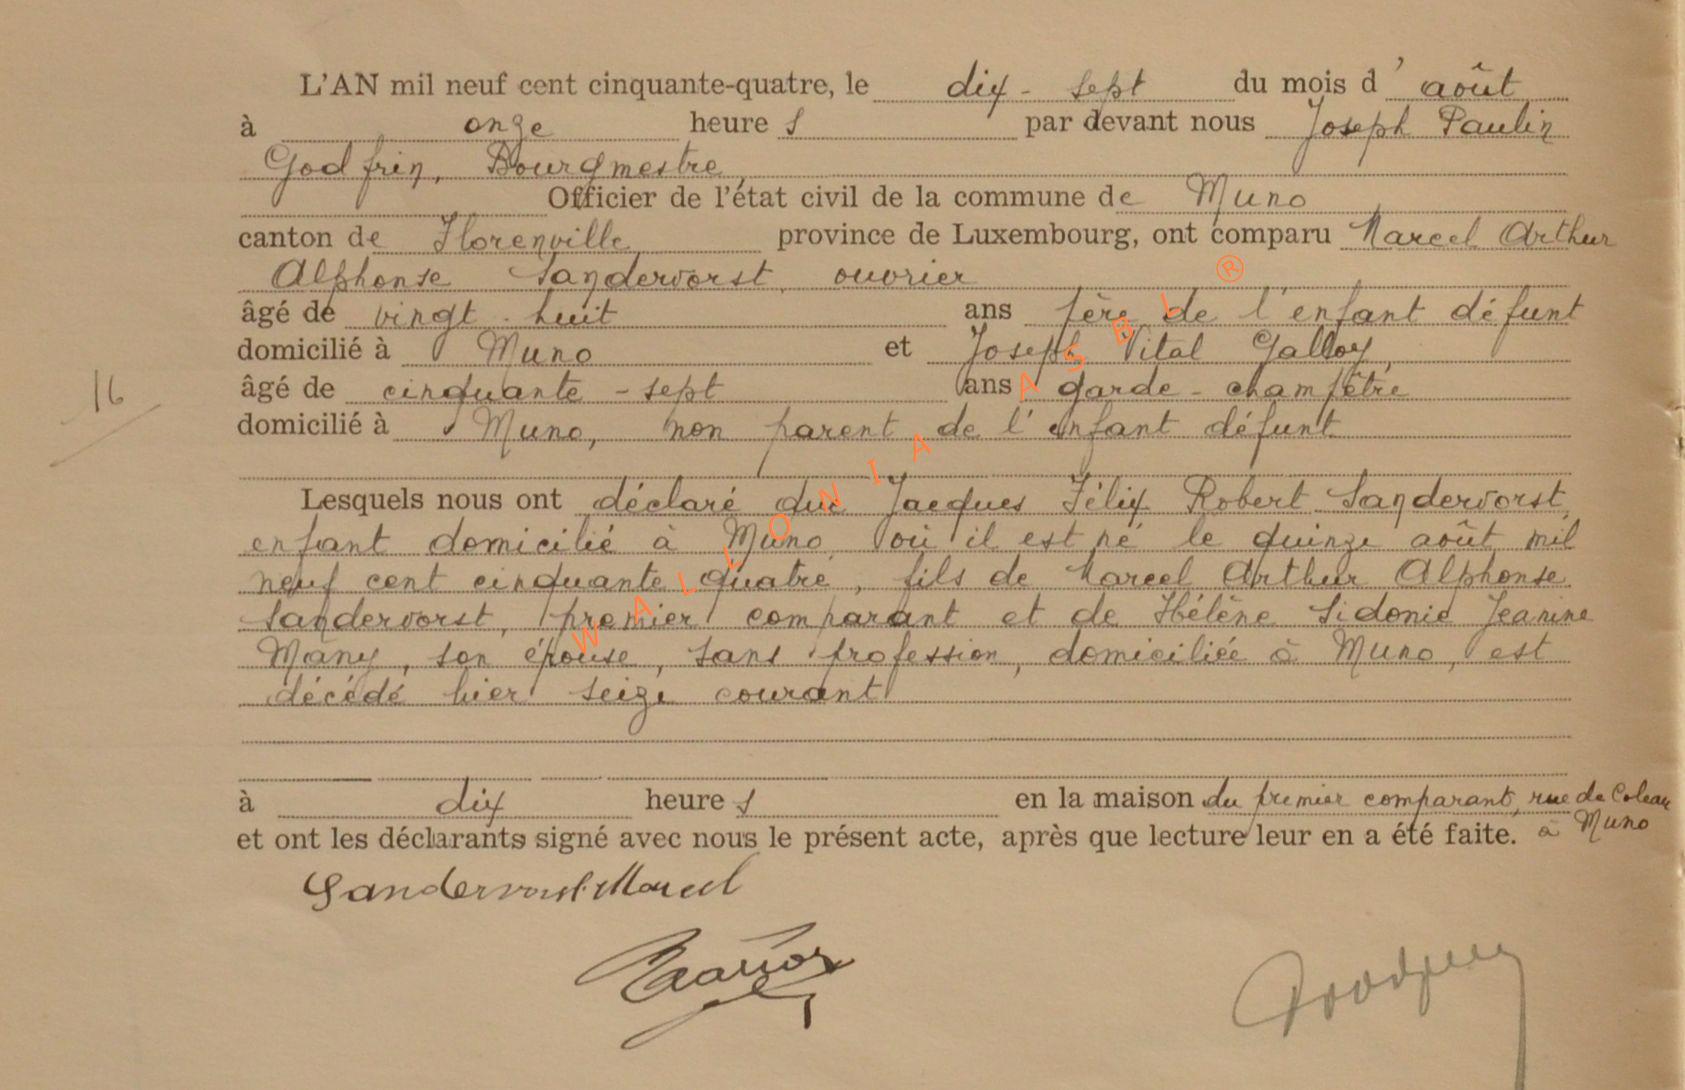 L'AN mil neuf cent cinquante-quatre, le dix-sept du mois d'août
à onze heure s par devant nous Joseph Paulin
Godfrin, Bourgmestre,
Officier de l'état civil de la commune de Muno
canton de Florenville province de Luxembourg, ont comparu Marcel Arthur
Alphonse Sandervorst, ouvrier
âgé de vingt-huit ans père de l'enfant défunt
domicilié à Muno et Joseph Vital Galloy,
16
âgé de cinquante-sept ans garde-champêtre
domicilié à Muno, non parent de l'enfant défunt
Lesquels nous ont déclaré que Jacques Félix Robert Sandervorst,
enfant domicilié à Muno, où il est né le quinze août mil
neuf cent cinquante quatre, fils de Marcel Arthur Alphonse
Sandervorst, premier comparant et de Hélène Sidonie Jeanine
Many, son épouse, sans profession, domiciliée à Muno, est
décédé hier seize courant
à dix heure s en la maison du premier comparant, rue de
et ont les déclarants signé avec nous le présent acte, après que lecture leur en a été faite. à Muno
Sandervorst Marcel
WALLONIA ASBL ®